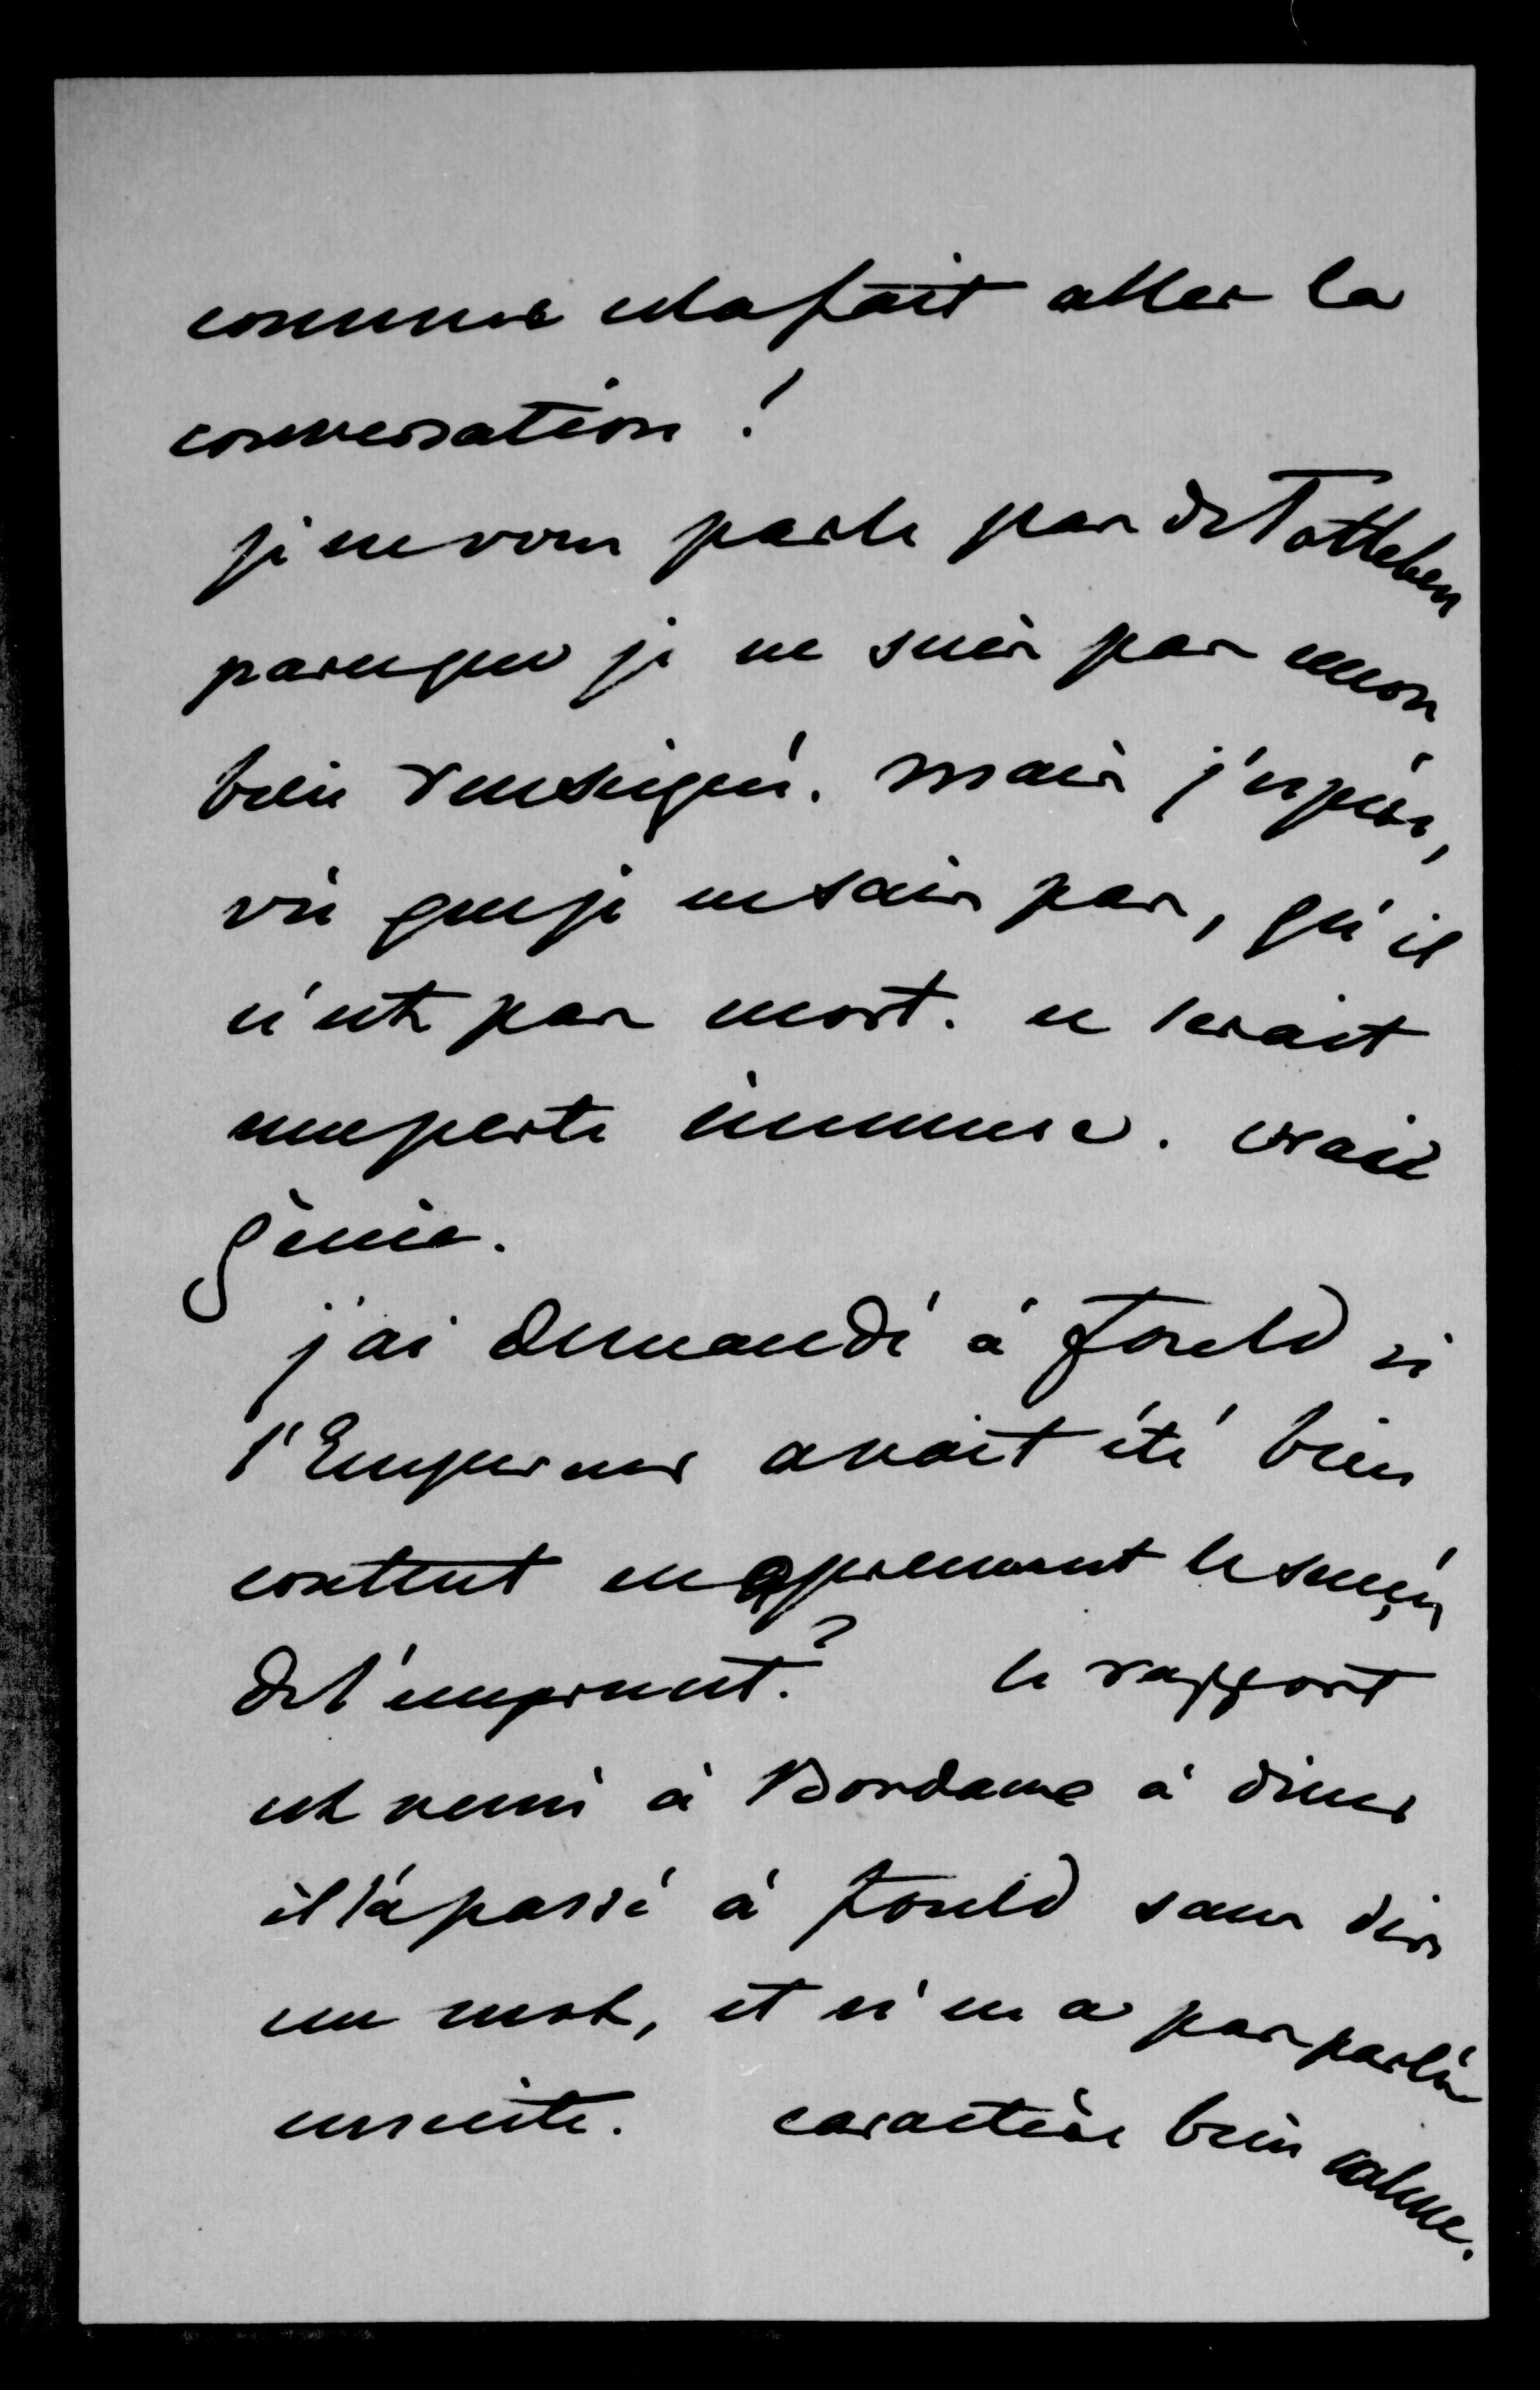 comme cela fait aller la
conversation !
je ne vous parle pas de Totleben
parceque je ne suis pas encor
bien renseigné. mais j'espère,
vû que je ne sais pas, qu'il
n'est pas mort. ce serait
une perte immense. vrai
génie.
j'ai demandé à Fould si
l'Empereur avait été bien
content en apprenant le succès
de l'emprunt ? le rapport
est venu à Bordeaux à diner
il l'a passé à Fould sans dire
un mot, et n'en a pas parlé
ensuite. caractère bien calme.